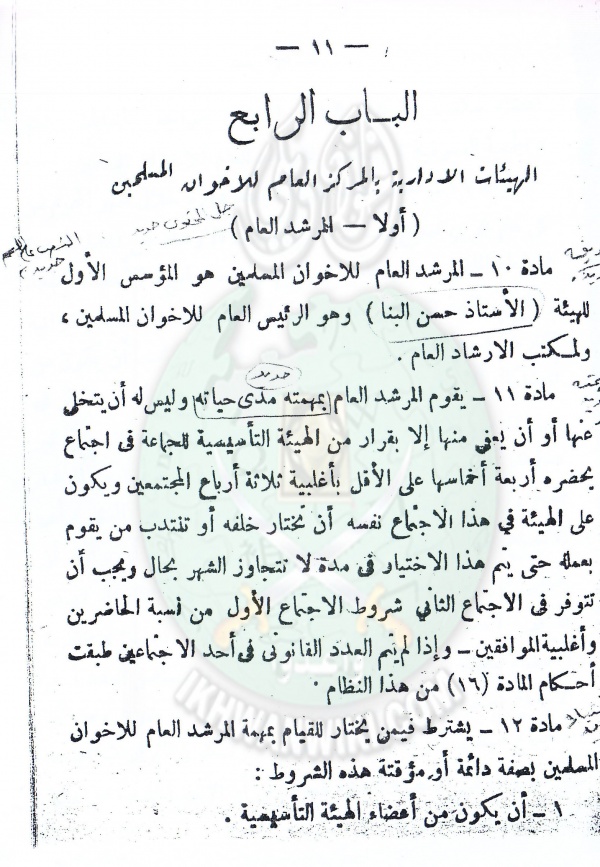 — ١١ —
البـاب الرابع
الهيئات الادارية بالمركز العام للاخوان المسلمين
( أولا — المرشد العام )
مادة ١٠ ــ المرشد العام للاخوان المسلمين هو المؤسس الأول
للهيئة ( الأستاذ حسن البنا ) وهو الرئيس العام للاخوان المسلمين ،
ولمكتب الارشاد العام .
جديد
مادة ١١ ــ يقوم المرشد العام بمهمته مدى حياته وليس له أن يتخلى
عنها أو أن يعفى منها إلا بقرار من الهيئة التأسيسية للجماعة فى اجتماع
يحضره أربعة أخماسها على الأقل بأغلبية ثلاثة أرباع المجتمعين ويكون
على الهيئة في هذا الاجتماع نفسه أن تختار خلفه أو تنتدب من يقوم
بعمله حتى يتم هذا الاختيار فى مدة لا تتجاوز الشهر بحال ويجب أن
تتوفر فى الاجتماع الثاني شروط الاجتماع الأول من نسبة الحاضرين
وأغلبية الموافقين ــ وإذا لم يتم العدد القانونى فى أحد الاجتماعين طبقت
أحكام المادة (١٦) من هذا النظام .
مادة ١٢ ــ يشترط فيمن يختار للقيام بمهمة المرشد العام للاخوان
المسلمين بصفة دائمة أو مؤقتة هذه الشروط :
١ ــ أن يكون من أعضاء الهيئة التأسيسية .
IKHWANWIKI.COM